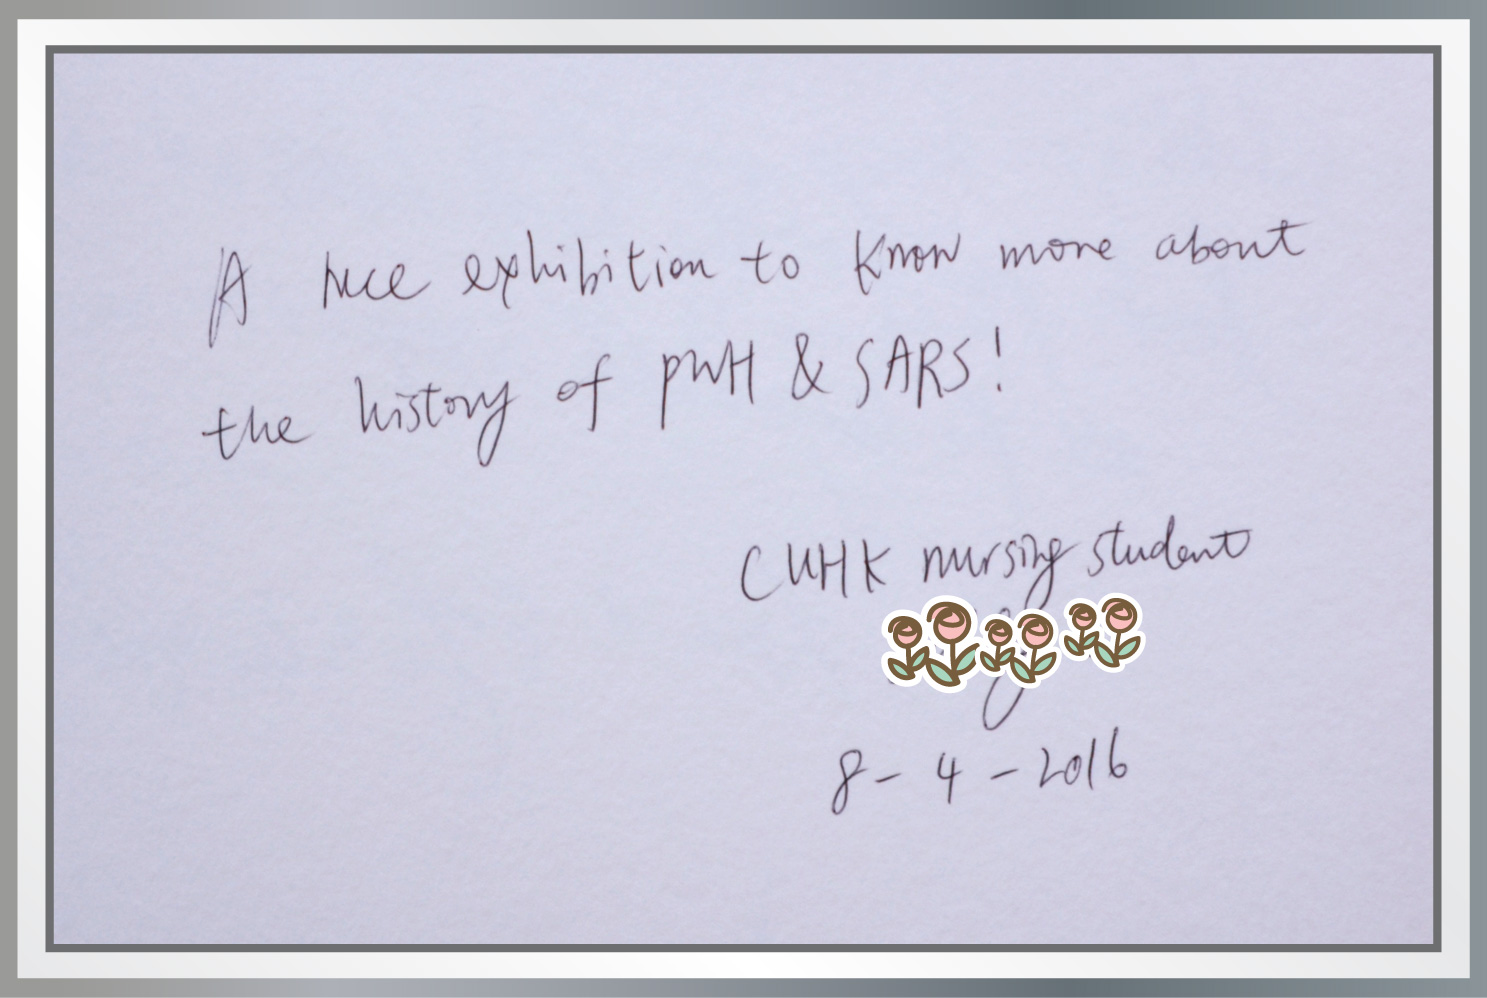 A nice exhibition to know more about
the history of PWH & SARS!
CUHK nursing student
8 - 4 - 2016